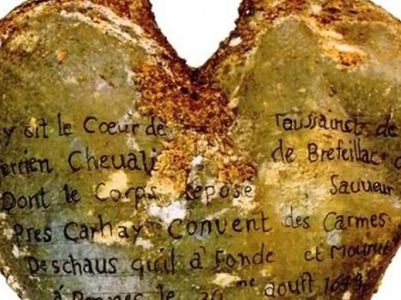 y git le Cœur de Toussainct de
errien Cheuali de Brefeillac
Dont le Corps repose Sauveur
Pres Carhay Convent des Carmes
Deschaus quil à Fonde et Mourut
à le me aouſt 1649